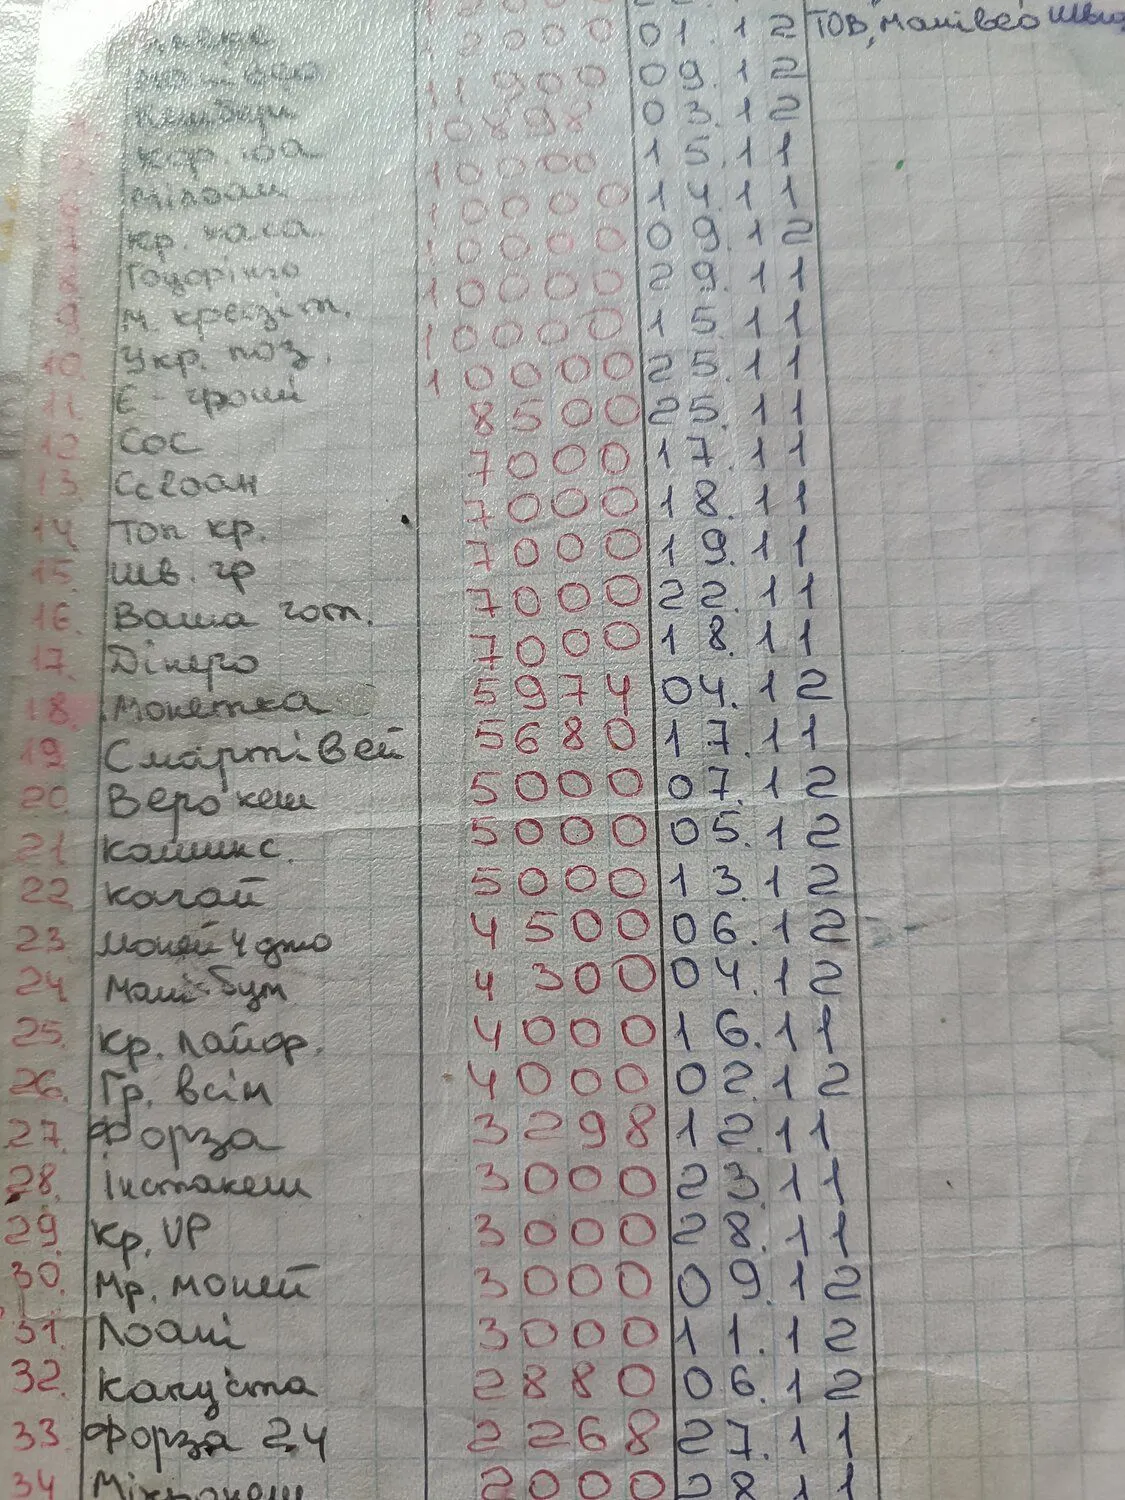 12000 01.12 ТОВ,
11900 09.12
10898 03.12
10000 15.11
10000 14.11
7. Кр. каса. 10000 09.12
8. 10000 29.11
9. М. кредит. 10000 15.11
10. Укр. поз. 10000 25.11
11. Є-гроший 8500 25.11
12. СОС 7000 17.11
13. Ссlоан 7000 18.11
14. Топ кр. 7000 19.11
15. Шв. гр 7000 22.11
16. Ваша гот. 7000 18.11
17. Дінеро 5974 04.12
18. Монетка 5680 17.11
19. Смартівей 5000 07.12
20.Верокеш 5000 05.12
21 5000 13.12
22. Качай 4500 06.12
23. Моней 4 4300 04.12
24. Мані-бум 4000 16.11
25. Кр. 4000 02.12
26. Гр. всім 3298 12.11
27. Форза 3000 23.11
28. Інстакеш 3000 28.11
29. Кр. VP 3000 09.12
30. Мр. моней 3000 11.12
31. Лоані 2880 06.12
32. Капуста 2268 27.11
33. Форза 2.4 2000 28.11
34